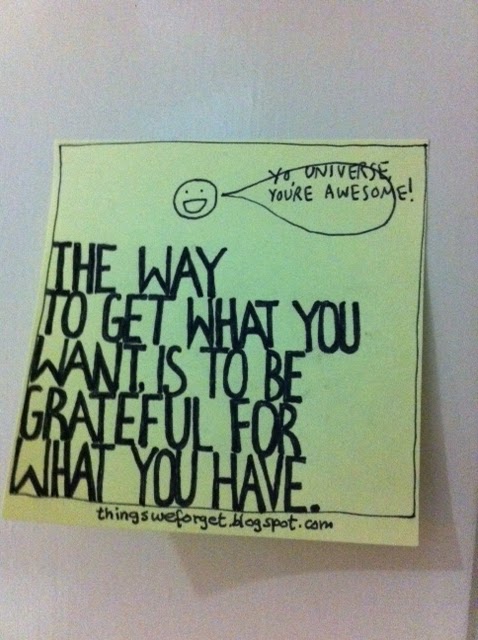 YO, UNIVERSE,
YOU'RE AWESOME!
THE WAY
TO GET WHAT YOU
WANT, IS TO BE
GRATEFUL FOR
WHAT YOU HAVE.
thingsweforget.blogspot.com